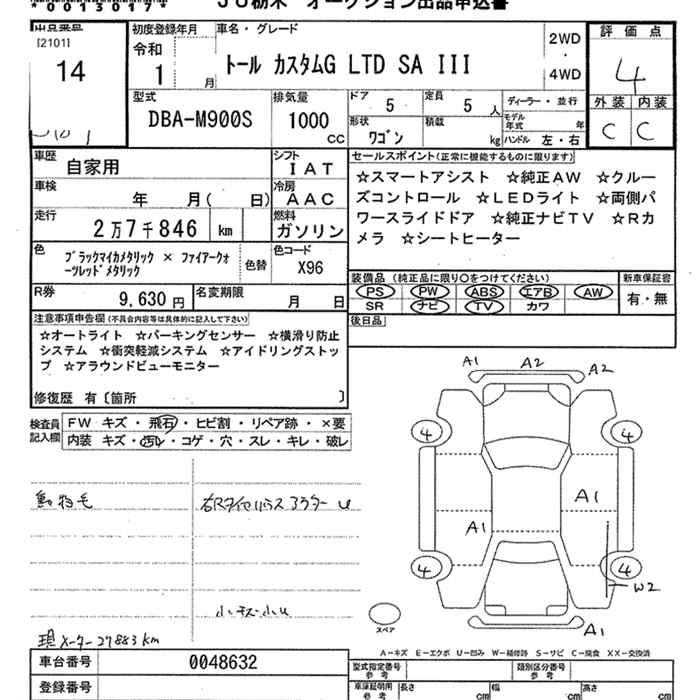 *00130 17*
JU栃木 オークション出品申込書
出品番号
[2101]
14
初度登録年月
令和
1 月
車名・グレード
トール カスタムG LTD SA III
2WD
・
4WD
評価点
4
外装 内装
C C
型式
DBA-M900S
排気量
1000
CC
ドア 5
定員 5 人
形状
ワゴン
積載
kg
ディーラー・並行
モデル年式 年
ハンドル 左・右
車歴
自家用
シフト
IAT
車検
年 月( 日)
冷房
AAC
走行
2万7千846 km
燃料
ガソリン
色
ブラックマイカメタリック × ファイアークォ
ーツレッドメタリック
色替
色コード
X96
R券
9,630 円
名変期限
月 日
セールスポイント(正常に機能するものに限ります)
☆スマートアシスト ☆純正AW ☆クルー
ズコントロール ☆LEDライト ☆両側パ
ワースライドドア ☆純正ナビTV ☆Rカ
メラ ☆シートヒーター
装備品 (純正品に限り○をつけてください)
PS PW ABS エアB AW
SR ナビ TV カワ
新車保証書
有・無
後日品
注意事項申告欄(不具合内容等は具体的に記入して下さい)
☆オートライト ☆パーキングセンサー ☆横滑り防止
システム ☆衝突軽減システム ☆アイドリングストッ
プ ☆アラウンドビューモニター
修復歴 有〔箇所 〕
検査員
記入欄
FW キズ・飛石・ヒビ割・リペア跡・×要
内装 キズ・汚レ・コゲ・穴・スレ・キレ・破レ
動物毛
小キズ・小U
現メーター27883km
A1 A2 A2
4 4
A1
A1
4 4
W2
A1
スペア
A−キズ E−エクボ U−凹み W−補修跡 S−サビ C−腐食 XX−交換済
車台番号
0048632
登録番号
型式指定番号
参考
類別区分番号
参考
車庫証明用
参考
長さ cm
幅 cm
高さ cm